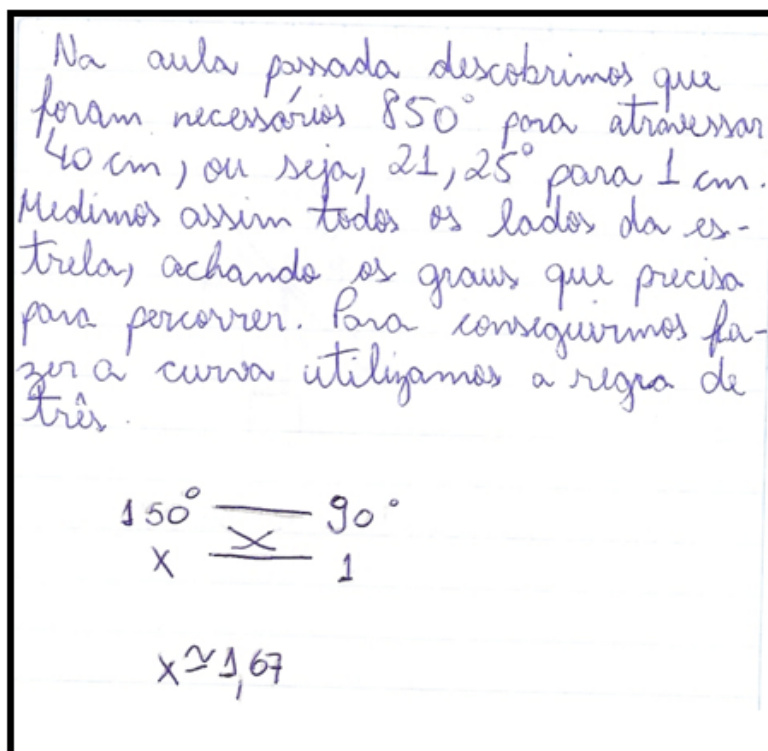 Na aula passada descobrimos que
foram necessários 850° para atravessar
40 cm, ou seja, 21,25° para 1 cm.
Medimos assim todos os lados da es-
trela, achando os graus que precisa
para percorrer. Para conseguirmos fa-
zer a curva utilizamos a regra de
três.
150° 90°
x 1
x ≃ 1,67